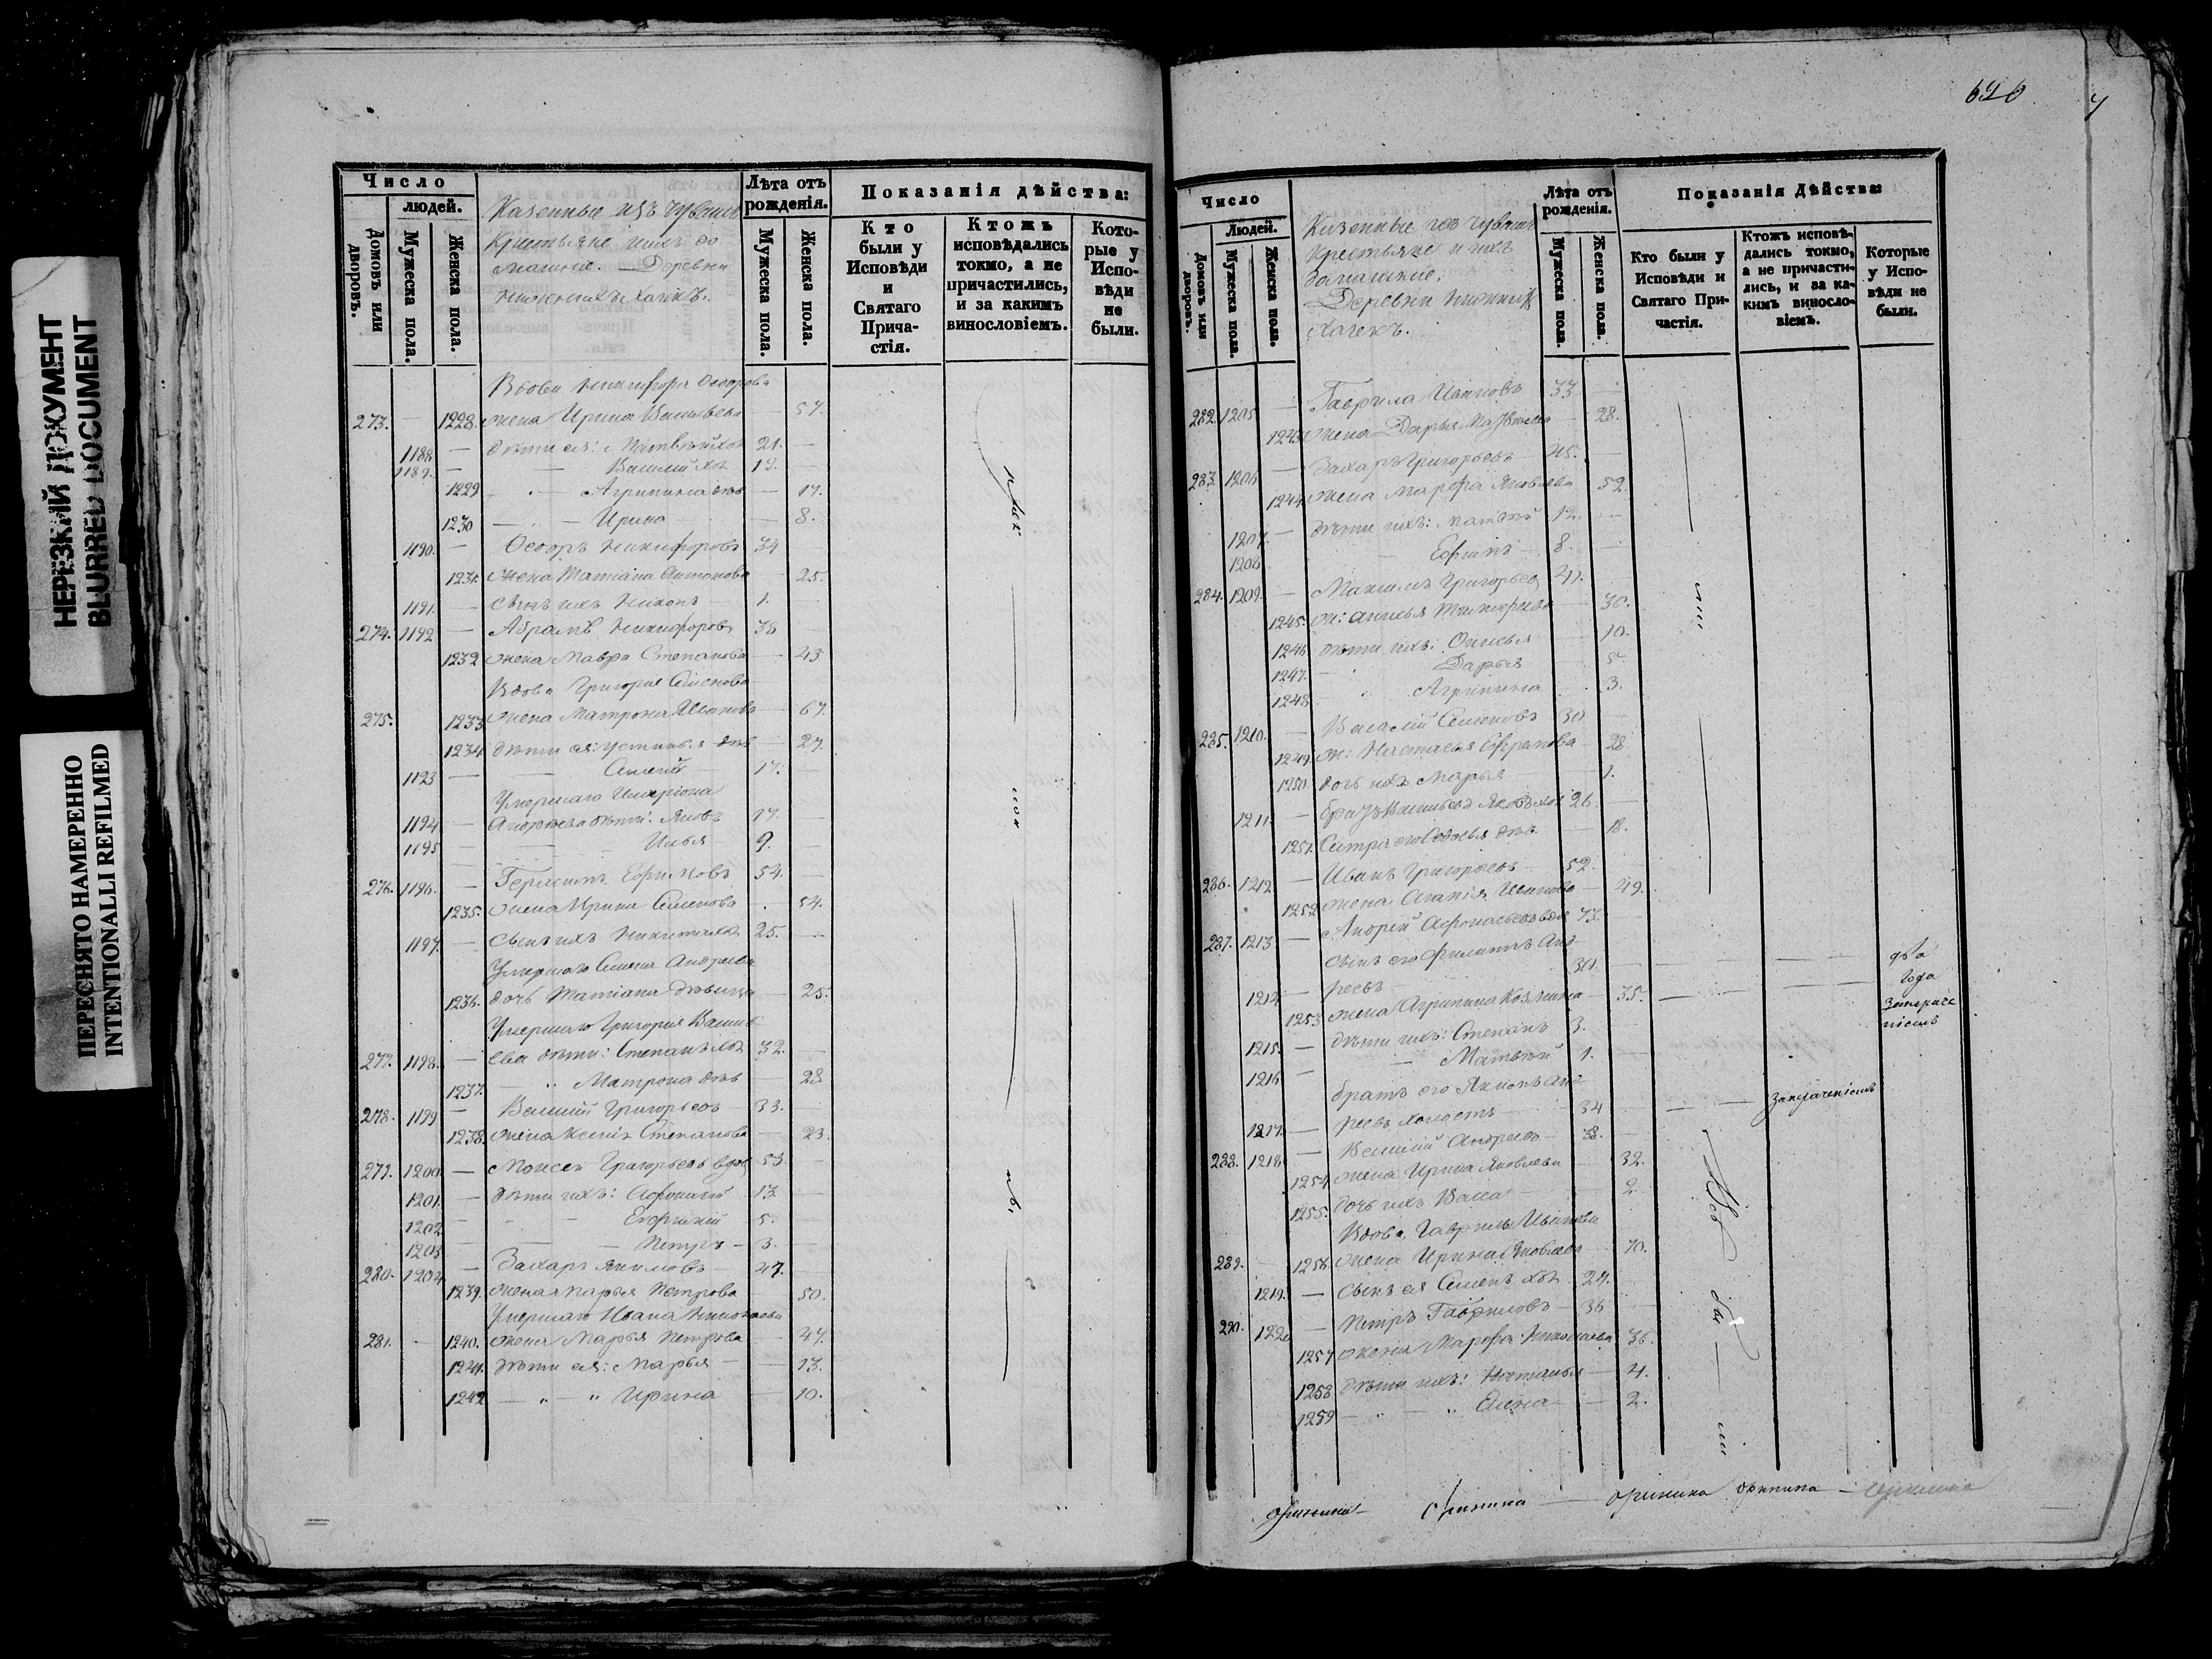 НЕРЕЗКИЙ ДОКУМЕНТ
BLURRED DOCUMENT
ПЕРЕСНЯТО НАМЕРЕННО
INTENTIONALLI REFILMED
Число
людей.
Домовъ или дворовъ.
Мужеска пола.
Женска пола.
Казенные изъ чувашъ
Крестьяне и ихъ до
машніе. Деревни
Нижнихъ
Лѣта отъ рожденія.
Мужеска пола.
Женска пола.
Показанія дѣйства:
Кто были у Исповѣди и Святаго Прича-стія.
Ктожъ исповѣдались токмо, а не причастились, и за какимъ винословіемъ.
Кото-рые у Испо-вѣди не были.
Вдова Никифора Ѳеодорова
273. — 1228. жена Ирина Васильева — 57.
1188. — дѣти ея: Матвей хол. 21. —
1189. — — Василій хол. 19. —
1229 — Агрипина дѣв. — 17.
1230 — — Ирина — 8.
1190. — Ѳеодоръ Никифоровъ 34
1231. жена Татіана Антонова — 25.
1191. — сынъ ихъ Никонъ 1.
274. 1192 — Абрамъ Никифоровъ 38
1232 жена Мавра Степанова — 43
Вдова Григорія Семенова
275. 1233 жена Матрона Иванова — 67.
1234 дѣти ея: Устинья дѣв. — 27.
1193 — — 17. —
Умершаго Иларіона
1194 — Андреева дѣти: Яковъ 17. —
1195 — — Илья 9. —
276. 1196. — Герасимъ Ефимовъ 54. —
1235. жена Ирина Семенова — 54.
1197. — сынъ ихъ Никита хол. 25. —
Умершаго Семена Андреева
1236. дочь Татіана дѣвица — 25.
Умершаго Григорія Василь
277. 1198. — ева дѣти: Степанъ хол. 32. —
1237. — " Матрона дѣв. — 28
278. 1199 — Василій Григорьевъ 33. —
1238. жена Ксенія Степанова — 23.
279. 1200. — Моисей Григорьевъ вдов 53 —
1201. — дѣти ихъ: Афонасій 13. —
1202 — — 5. —
1203 — — Петръ 3. —
280. 1204 — Захаръ Якимовъ 47.
1239. жена Марья Петрова — 50.
Умершаго Ивана Николаева
281. — 1240. жена Марья Петрова — 47.
1241. дѣти ея: Марья — 13.
1242 — " — " Ирина — 10.
626
Число
Людей.
Домовъ или дворовъ.
Мужеска пола.
Женска пола.
Казенные изъ чувашъ
Крестьяне и ихъ
домашніе.
Деревни Нижнихъ
Лѣта отъ рожденія.
Мужеска пола.
Женска пола.
Показанія Дѣйства:
Кто были у Исповѣди и Святаго При-частія.
Ктожъ исповѣ-дались токмо, а не причасти-лись, и за ка-кимъ виносло-віемъ.
Которые у Испо-вѣди не были.
282. 1205 — Гаврила Ивановъ 33 —
1243. жена Дарья — 28.
283. 1206 — Захаръ Григорьевъ 45. —
1244. жена Марфа Яковлева — 52
1207. — дѣти ихъ: Матвей 12. —
1208 — Ефимъ 8. —
284. 1209. — Максимъ Григорьевъ 41. —
1245. ж: Анисья Тимофеева — 36.
1246. дѣти ихъ: — 10.
1247. — " Дарья — 5
1248. " Агрипина — 3.
285. 1210. — Василій Семеновъ 30 —
1249. ж: Настасья — 28
1250. дочь ихъ Марья — 1.
1211. — братъ Васильевъ Яковъ хол 26 —
1251. Сестра его Ѳедосья дѣв. — 18.
286. 1212. — Иванъ Григорьевъ 52. —
1252 жена Агапія Иванова — 49.
287. 1213. — Андрей Афонасьевъ вдов 73. —
сынъ его Филиппъ Анд
1214. — реевъ 30. —
1253 жена Агрипина Козмина — 35.
два года
1215. — дѣти ихъ: Степанъ 3. —
1216 — — Матвей 1. —
братъ его Якимъ Анд
1217. — реевъ холостъ 34 —
288. 1218 — Василій Андреевъ 38. —
1254 жена Ирина Яковлева — 32.
1255. дочь ихъ Васса — 2
Вдова Гаврила Иванова
289. — 1256. жена Ирина Яковлева — 70.
1219. — сынъ ея Семенъ хол. 24. —
290. 1220 — Петръ Гавриловъ 36 —
1257 жена Марфа Николаева 36.
1258 дѣти ихъ: Настасья — 4.
1259 — " Елена — 2.